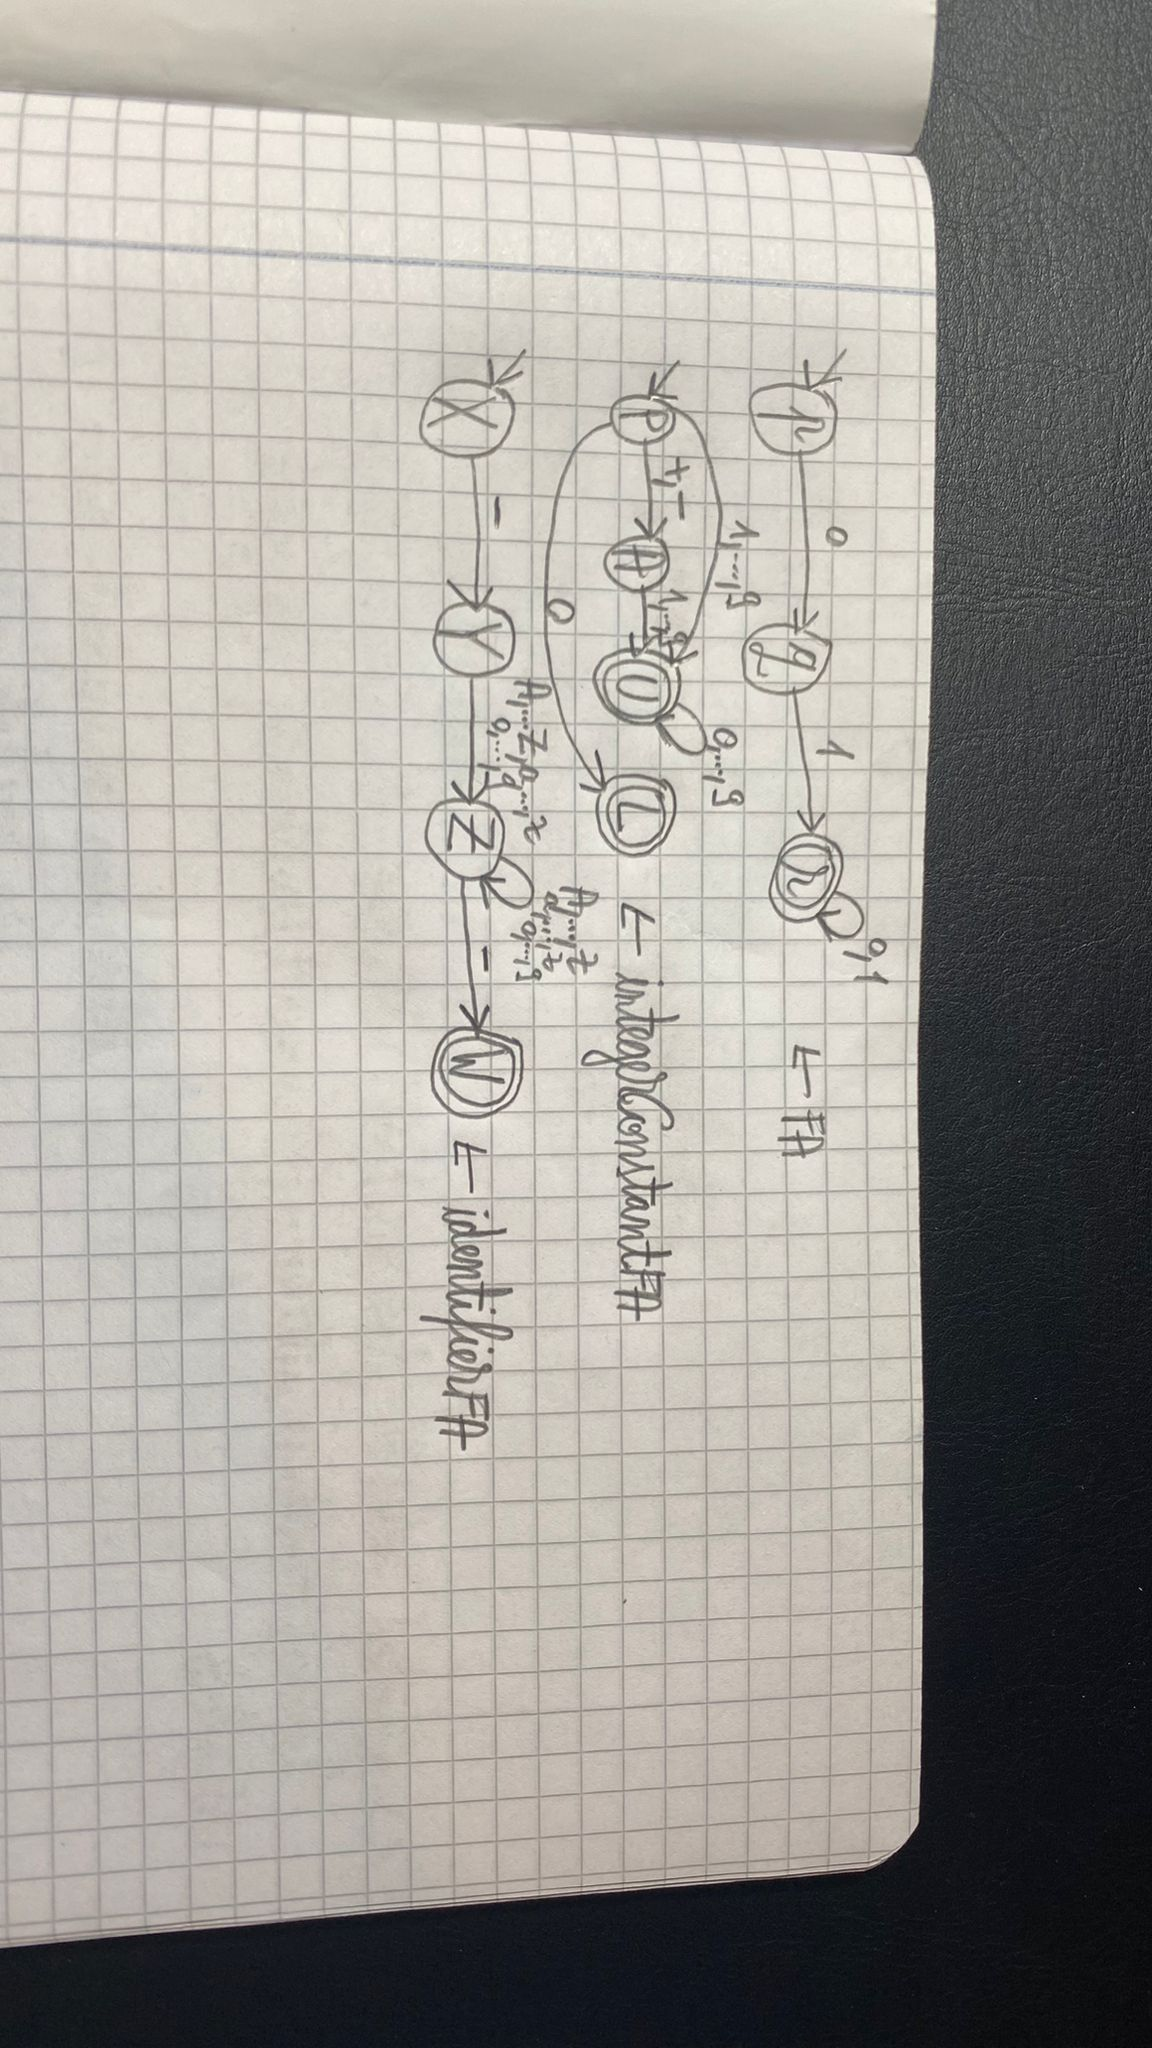 p 0 q 1 r 0,1 ← FA
1,...,9
P +,- A 1,...,9 U 0,...,9 L ← integerConstantFA
0
A,...,Z
a,...,z
0,...,9
A,...,Z,a,...,z
0,...,9
X _ Y Z _ W ← identifierFA